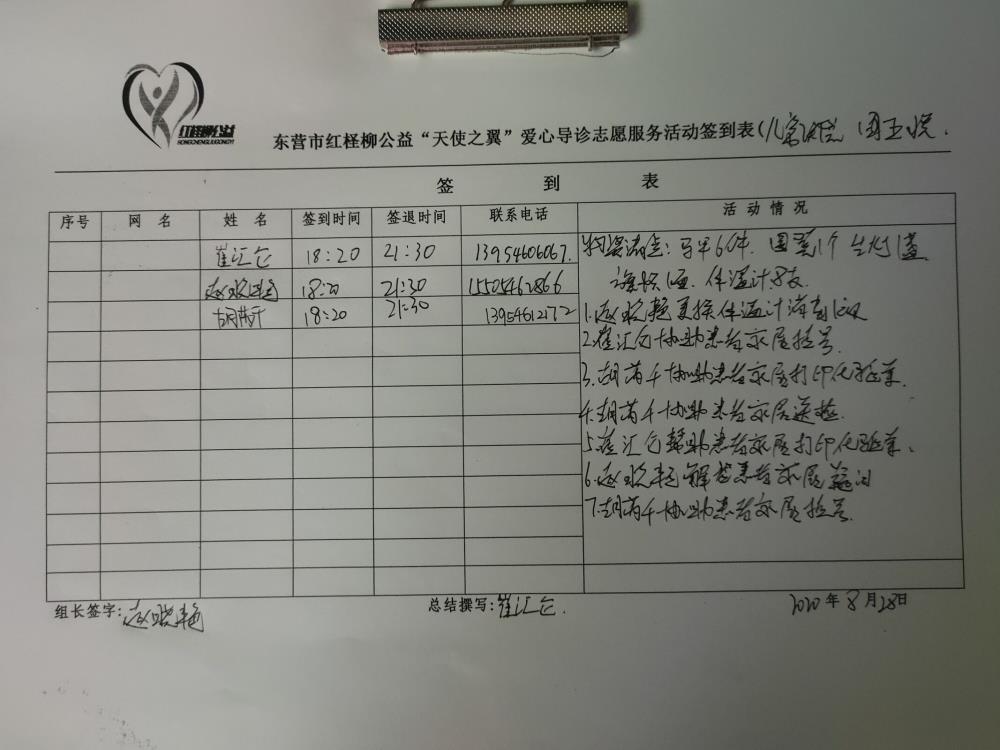 红柽柳公益
HONGCHENGLIUGONGYI
东营市红柽柳公益“天使之翼”爱心导诊志愿服务活动签到表(儿童医院 周五晚.
签 到 表
序号 网 名 姓 名 签到时间 签退时间 联系电话 活动情况
崔汇仓 18:20 21:30 13954606067.
赵晓艳 18:20 21:30 15505462866
胡芮千 18:20 21:30 13954612172
物资清点: 马甲6件.
体温计8支.
1.赵晓艳更换体温计消毒液
2.崔汇仓协助患者家属挂号.
3.胡芮千协助患者家属打印化验单.
4.胡芮千协助患者家属送检.
5.崔汇仓帮助患者家属打印化验单.
6.赵晓艳解答患者家属疑问
7.胡芮千协助患者家属挂号.
组长签字:赵晓艳 总结撰写:崔汇仓. 2020年8月28日